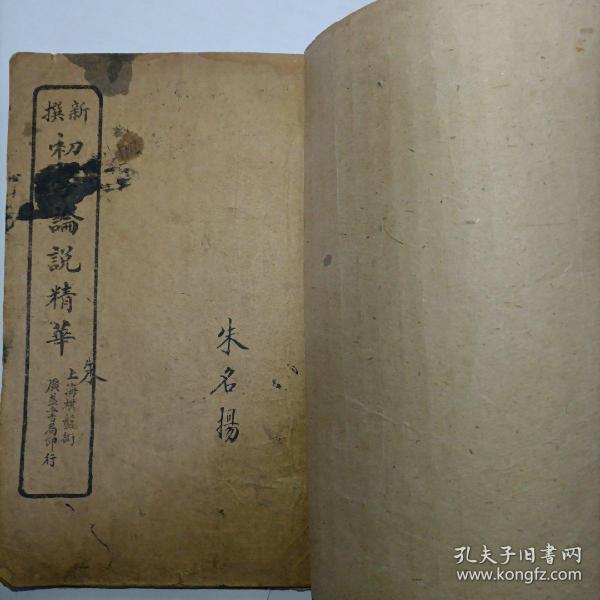 新撰
初論說精華
上海棋盤街
廣益書局印行
朱
朱名揚
孔夫子旧书网
www.kongfz.com